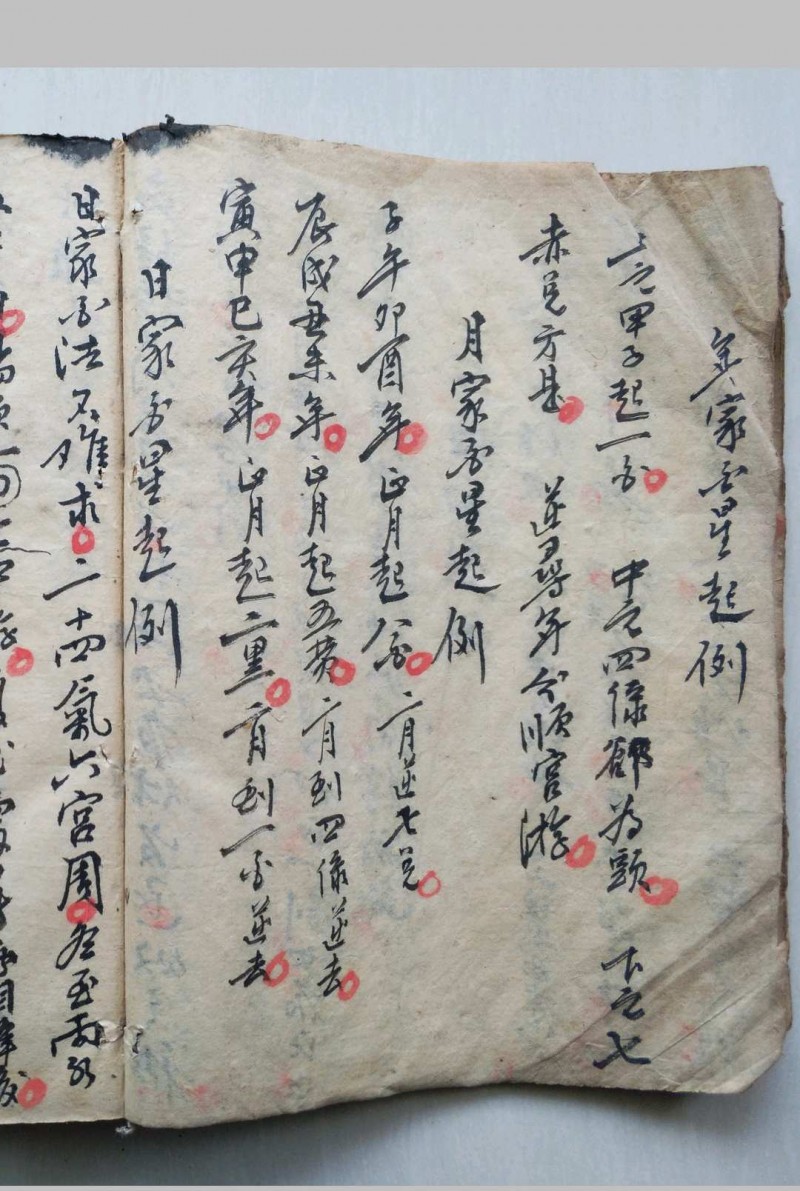 年家白星起例
上元甲子起一白 中元四绿卻为頭 下元七
赤兑方是 逆尋年分順宫游
月家白星起例
子午卯酉年正月起八白二月逆七兑
辰戌丑未年正月起五黄二月到四绿逆去
寅申巳亥年正月起二黑二月到一白逆去
日家白星起例
日家白法不难求二十四氣六宫周冬至雨水